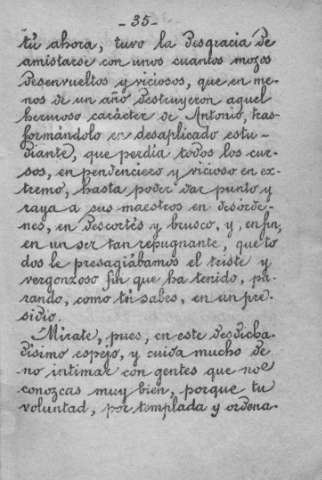 - 35 -
tú ahora, tuvo la desgracia de
amistarse con unos cuantos mozos
desenvueltos y viciosos, que en me-
nos de un año destruyeron aquel
hermoso carácter de Antonio, tras-
formándolo en desaplicado estu-
diante, que perdía todos los cur-
sos, en pendenciero y vicioso en ex-
tremo, hasta poder dar punto y
raya a sus maestros en desórde-
nes, en descortés y brusco, y, en fin,
en un ser tan repugnante, que to-
dos le presagiábamos el triste y
vergonzoso fin que ha tenido, pa-
rando, como tú sabes, en un pre-
sidio.
Mírate, pues, en este desdicha-
dísimo espejo, y cuida mucho de
no intimar con gentes que no
conozcas muy bien, porque tu
voluntad, por templada y ordena-